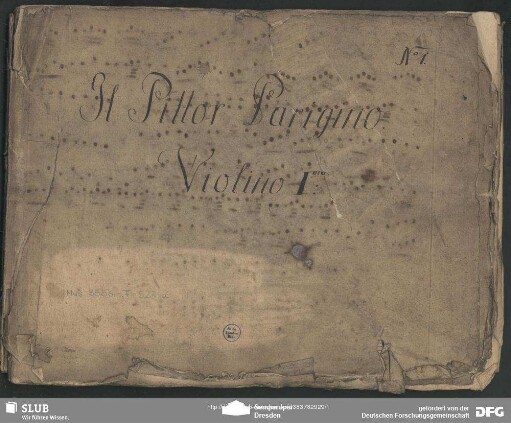 No 1.
Il Pittor Parigino
Violino Imo
SLUB
Wir führen Wissen.
Dresden
gefördert von der
Deutschen Forschungsgemeinschaft
DFG